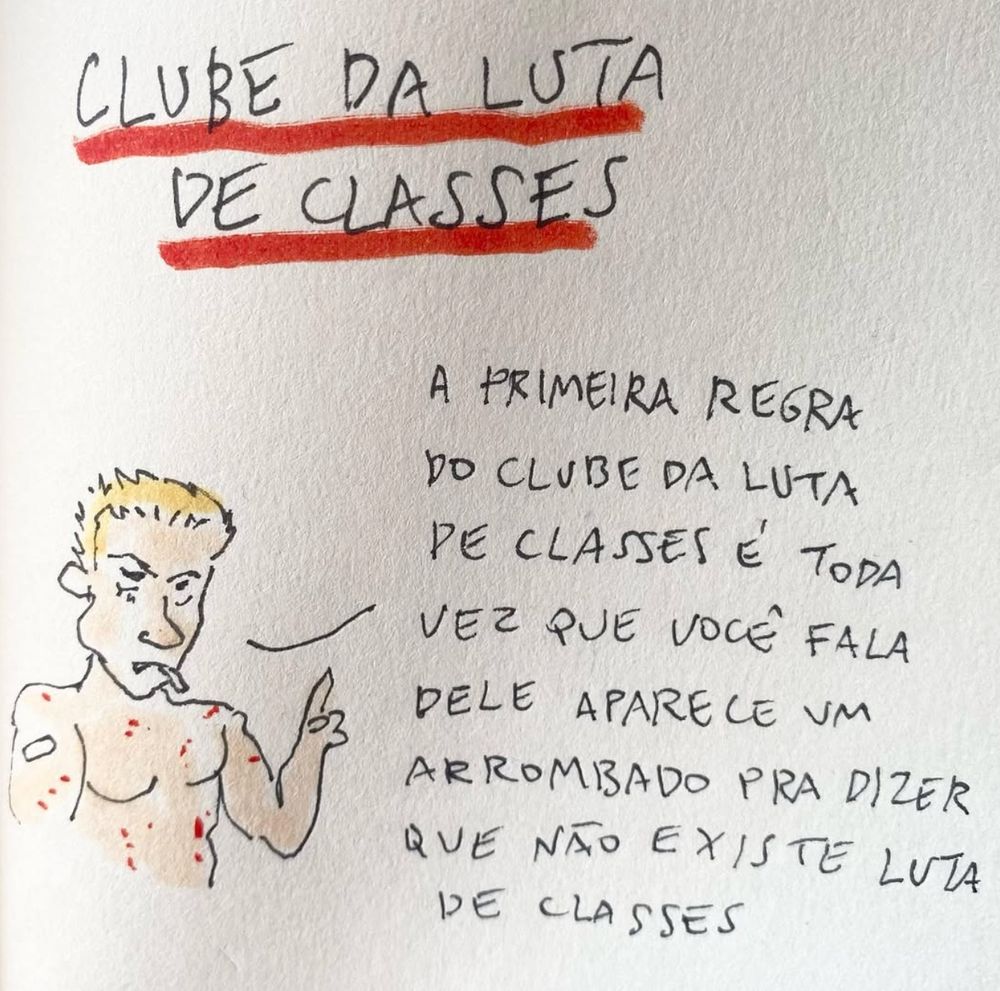 CLUBE DA LUTA
DE CLASSES
A PRIMEIRA REGRA
DO CLUBE DA LUTA
DE CLASSES É TODA
VEZ QUE VOCÊ FALA
DELE APARECE UM
ARROMBADO PRA DIZER
QUE NÃO EXISTE LUTA
DE CLASSES